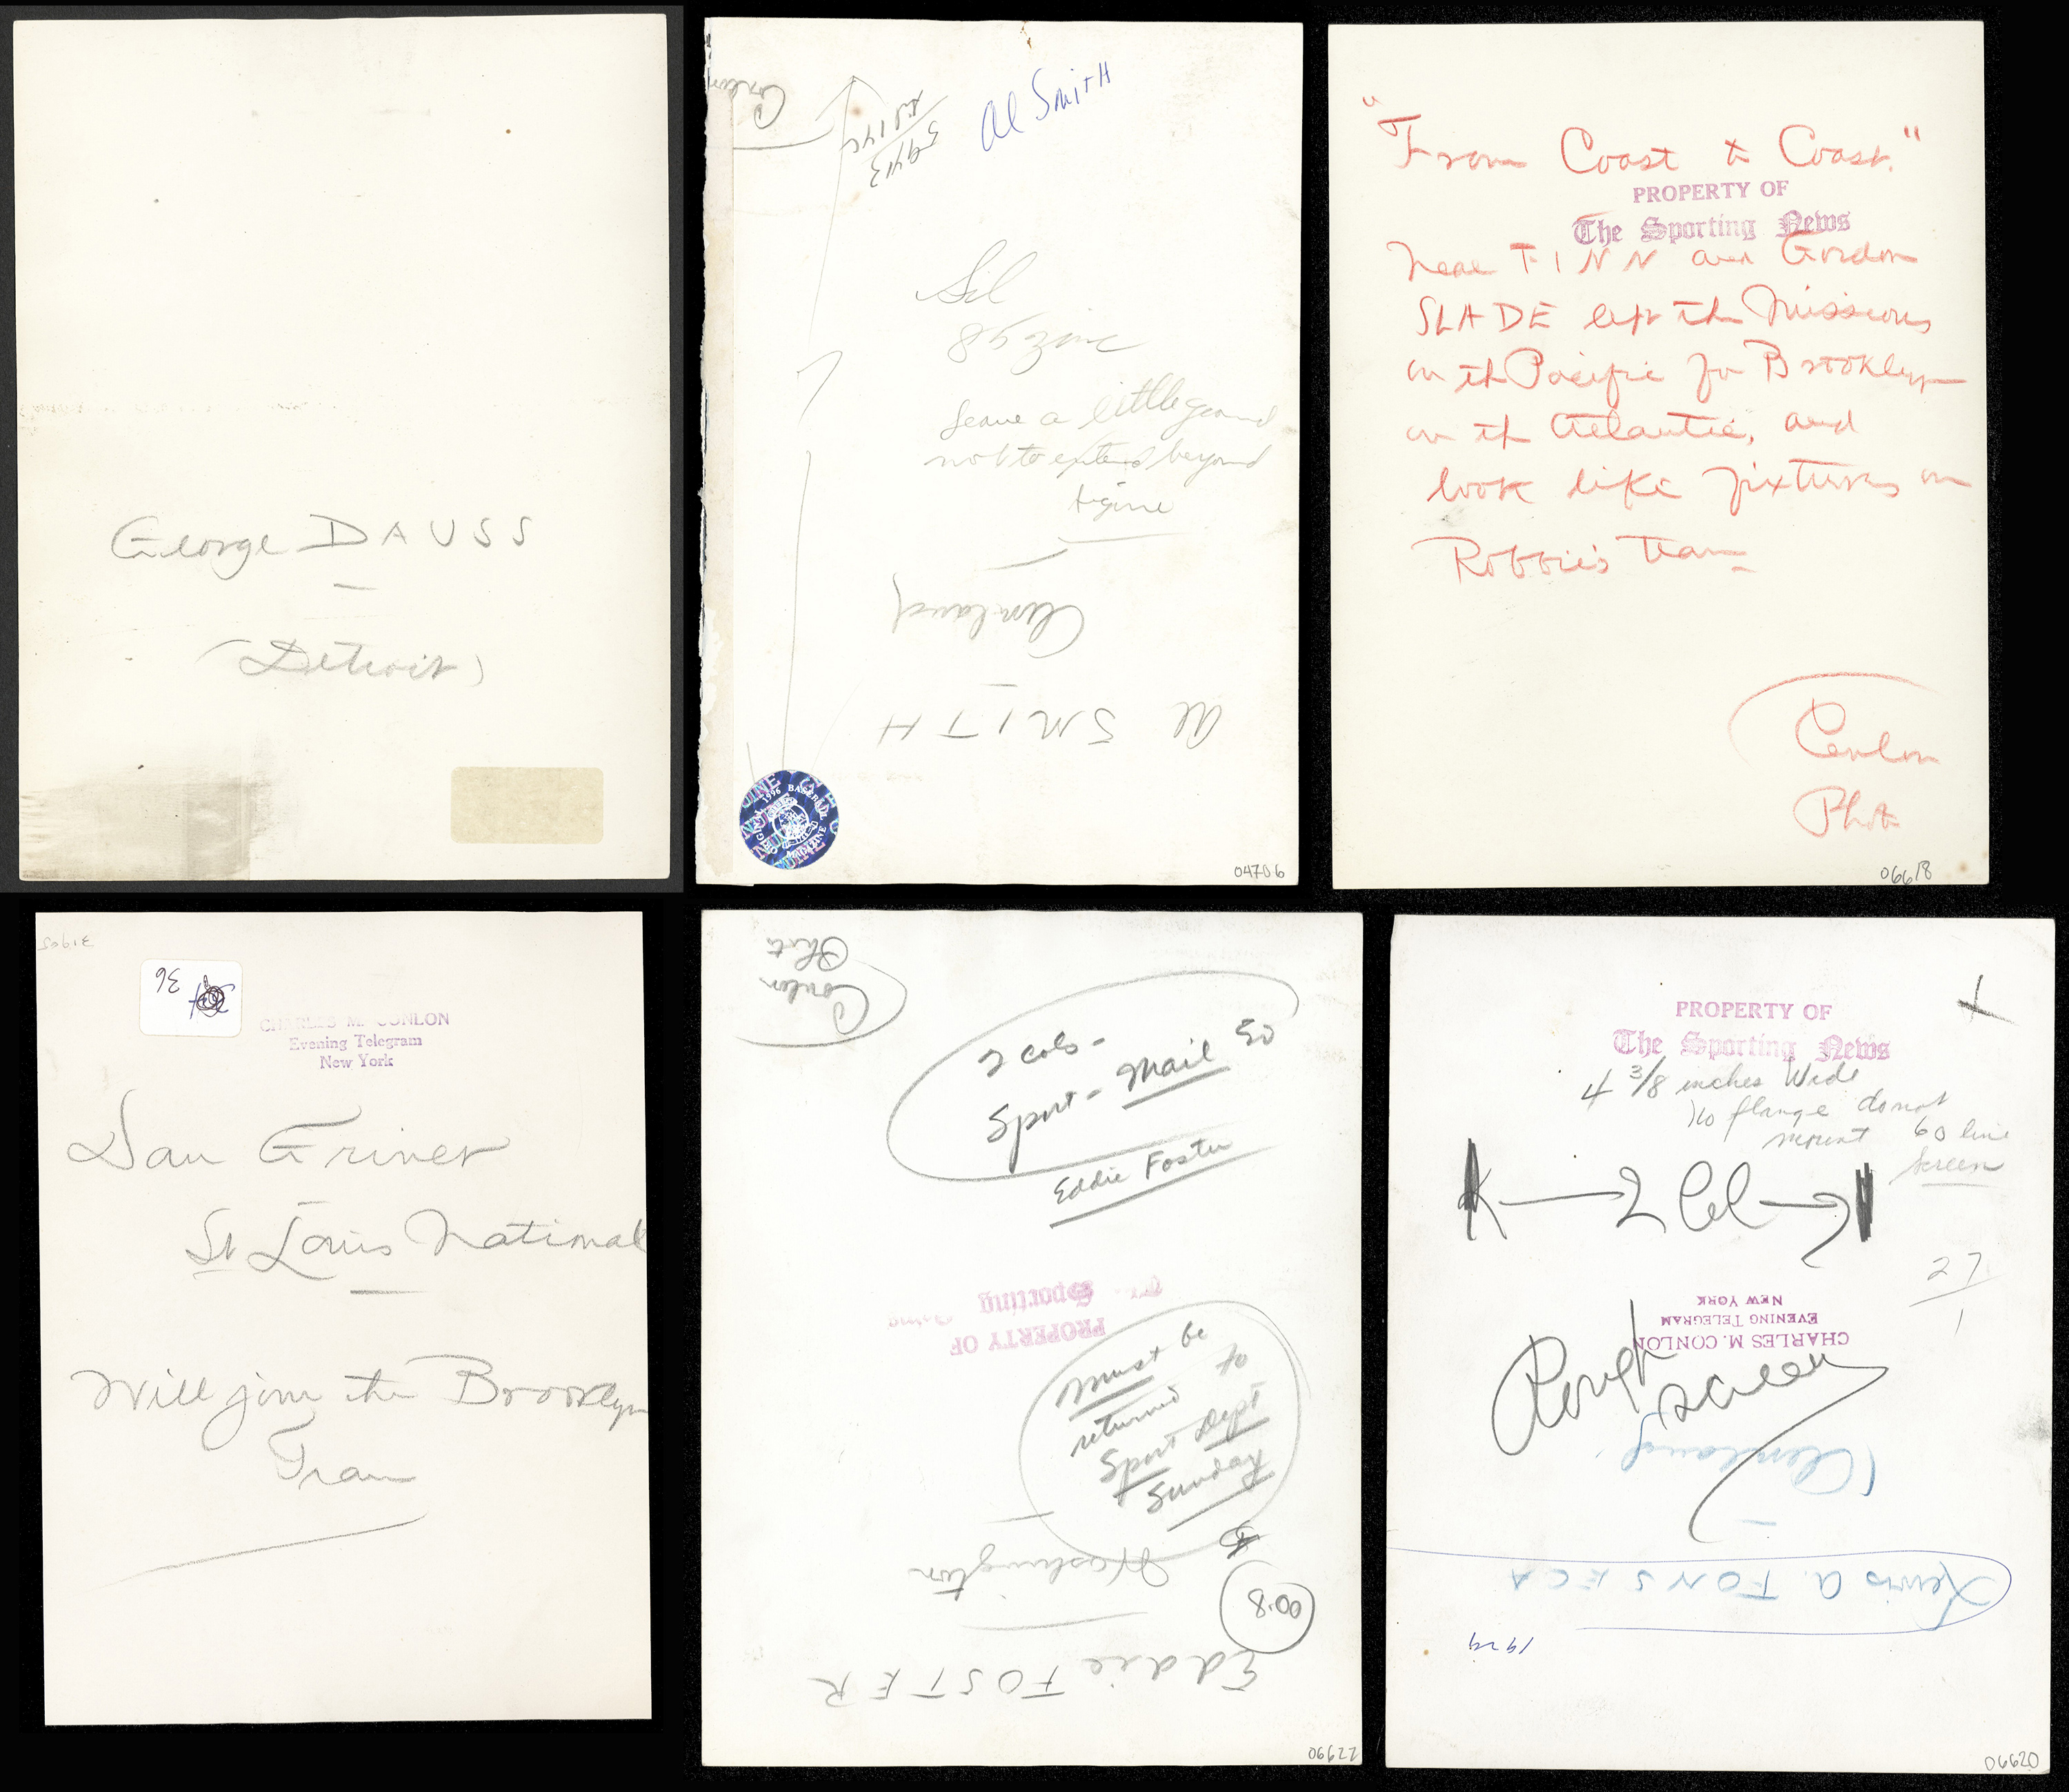 George DAUSS
(Detroit)
Conlon
5943
Al Smith
Sil
zinc
leave a little ground
not to extend beyond
figure
Cleveland
Al SMITH
1996 BASEBALL
04706
"From Coast to Coast."
PROPERTY OF
The Sporting News
Neal FINN and Gordon
SLADE left the Missions
on the Pacific for Brooklyn
on the Atlantic, and
look like fixtures on
Robbie's Team
Conlon
Photo
06618
31905
36
CHARLES M. CONLON
Evening Telegram
New York
Dan Griner
St Louis National
Will join the Brooklyn
Team
Conlon
Photo
2 cols-
Sport - Mail Ed
Eddie Foster
PROPERTY OF
The Sporting News
Must be
returned to
Sport Dept
Sunday
Washington
8.00
Eddie FOSTER
06622
PROPERTY OF
The Sporting News
4 3/8 inches Wide
No flange do not
mount 60 line
screen
2 Col
27
1
CHARLES M. CONLON
EVENING TELEGRAM
NEW YORK
Rough
screen
(Cleveland)
Lewis A. FONSECA
1929
06620